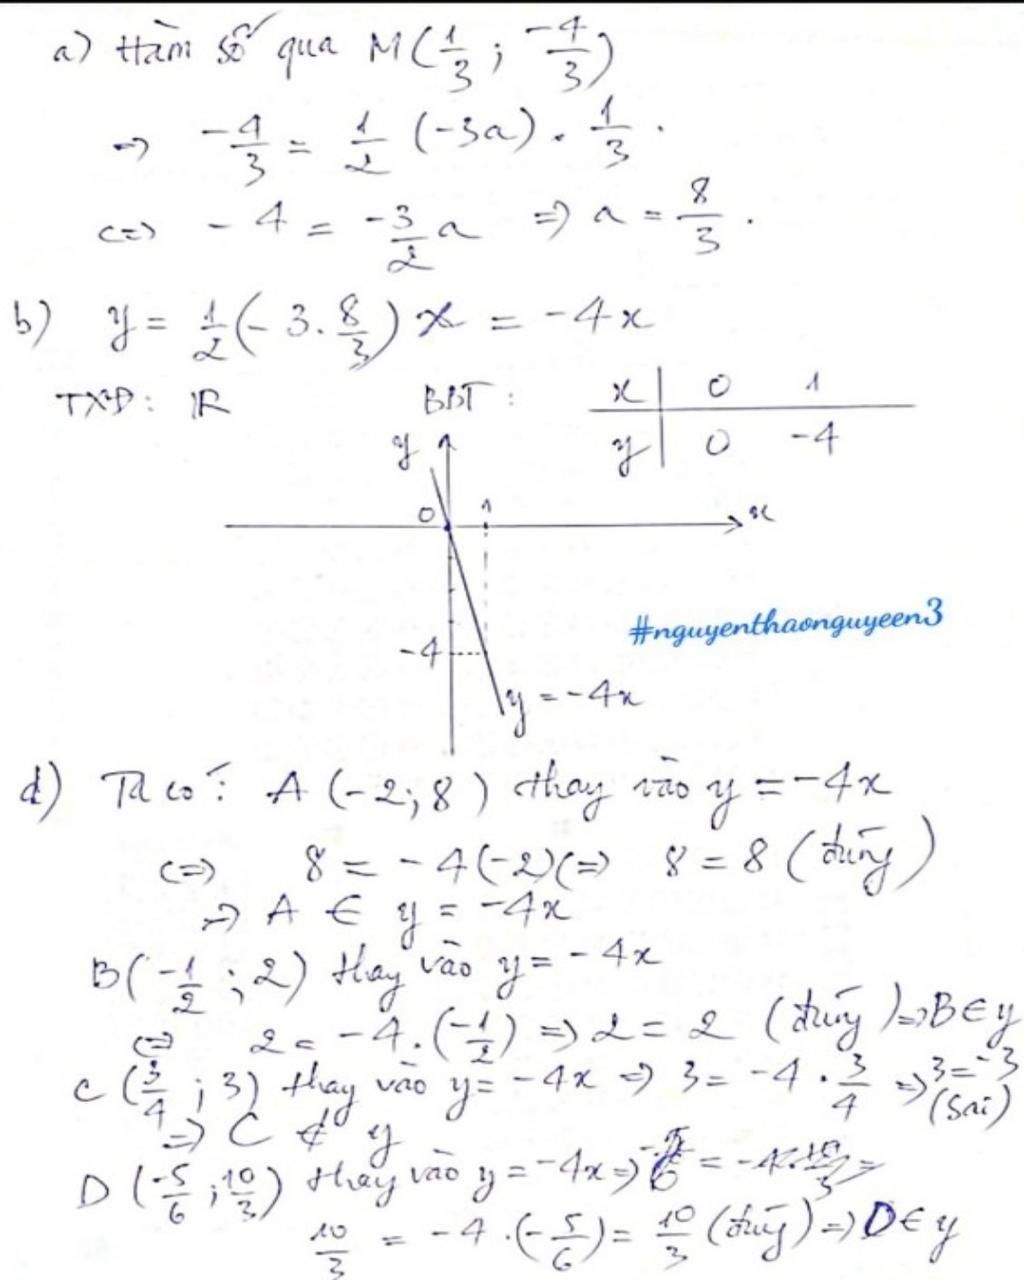 a) Hàm số qua M(1/3 ; -4/3)
=> -4/3 = 1/2 (-3a) . 1/3 .
<=> - 4 = -3/2 a => a = 8/3 .
b) y = 1/2 (- 3 . 8/3) x = -4x
TXĐ: IR BBT :
x | 0 1
y | 0 -4
y
0 1 x
-4
y = -4x
#nguyenthaonguyeen3
d) Ta có : A (-2; 8) thay vào y = -4x
<=> 8 = - 4 (-2) <=> 8 = 8 (đúng)
=> A ∈ y = -4x
B(-1/2 ; 2) thay vào y = - 4x
<=> 2 = -4. (-1/2) => 2 = 2 (đúng) => B ∈ y
C (3/4 ; 3) thay vào y = -4x => 3 = -4 . 3/4 => 3 = -3 (sai)
=> C ∉ y
D (-5/6 ; 10/3) thay vào y = -4x =>
10/3 = -4 .(-5/6) = 10/3 (đúng) => D ∈ y